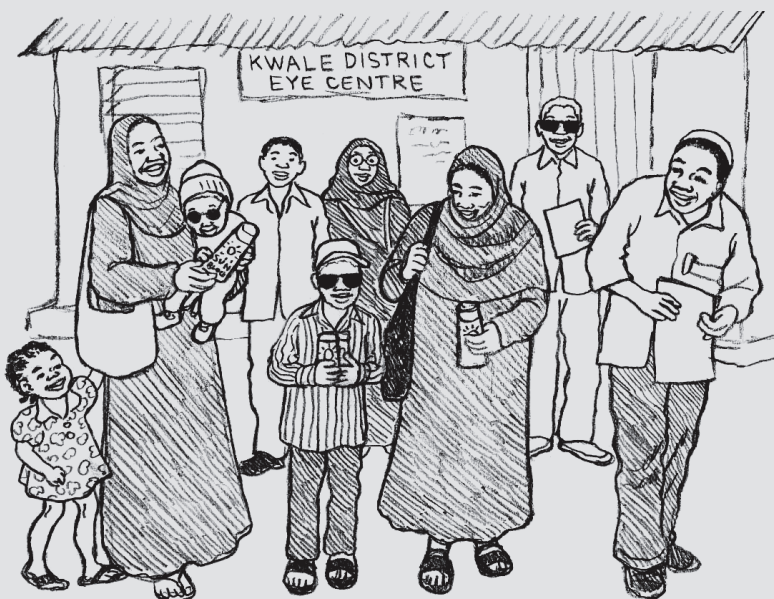 KWALE DISTRICT
EYE CENTRE